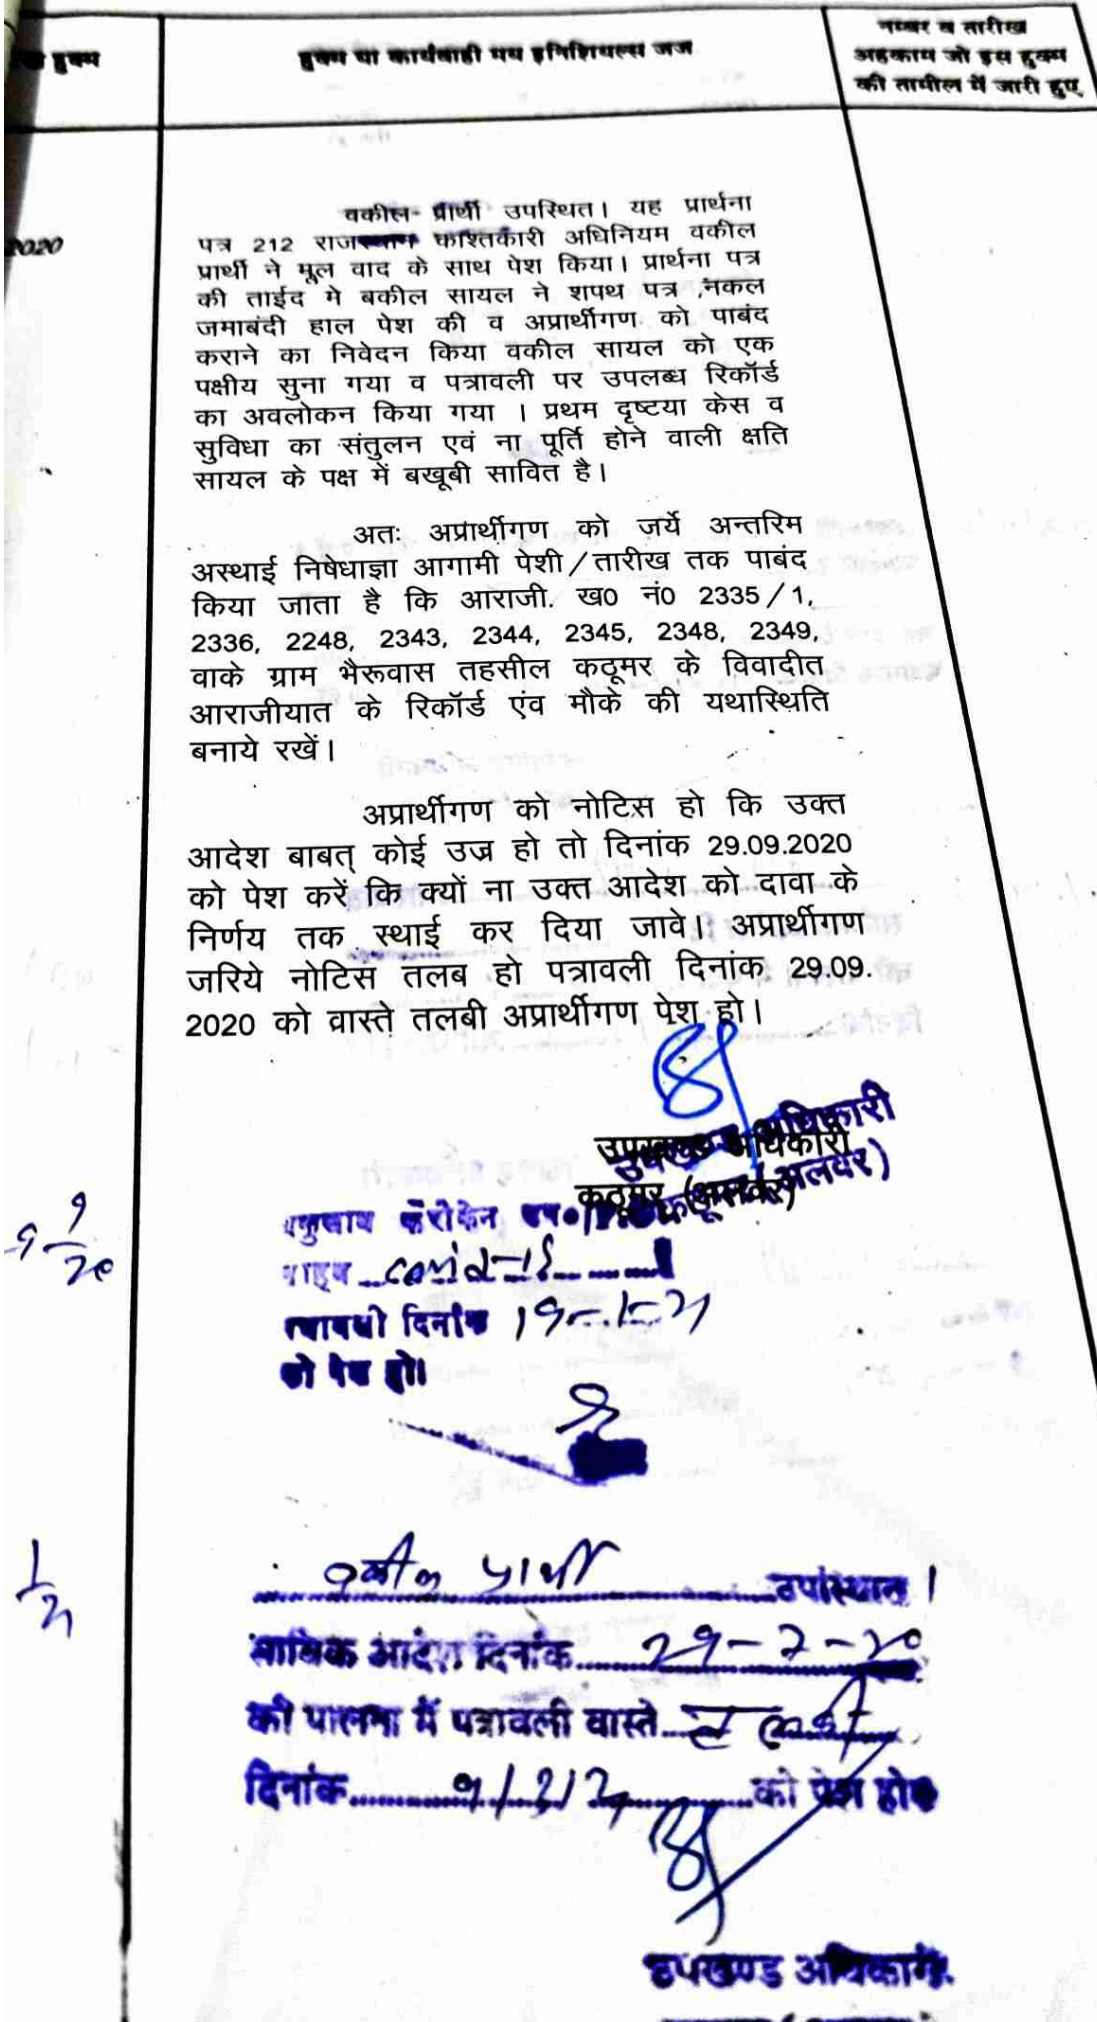 हुक्म
हुक्म या कार्यवाही मय इनिशियल्स जज
नम्बर व तारीख
अहकाम जो इस हुक्म
की तामील में जारी हुए
2020
वकील प्रार्थी उपस्थित। यह प्रार्थना
पत्र 212 राजस्थान काश्तकारी अधिनियम वकील
प्रार्थी ने मूल वाद के साथ पेश किया। प्रार्थना पत्र
की ताईद मे बकील सायल ने शपथ पत्र ,नकल
जमाबंदी हाल पेश की व अप्रार्थीगण को पाबंद
कराने का निवेदन किया वकील सायल को एक
पक्षीय सुना गया व पत्रावली पर उपलब्ध रिकॉर्ड
का अवलोकन किया गया । प्रथम दृष्टया केस व
सुविधा का संतुलन एवं ना पूर्ति होने वाली क्षति
सायल के पक्ष में बखूबी सावित है।
अतः अप्रार्थीगण को जर्ये अन्तरिम
अस्थाई निषेधाज्ञा आगामी पेशी/तारीख तक पाबंद
किया जाता है कि आराजी. ख0 नं0 2335/1,
2336, 2248, 2343, 2344, 2345, 2348, 2349,
वाके ग्राम भैरूवास तहसील कठूमर के विवादीत
आराजीयात के रिकॉर्ड एंव मौके की यथास्थिति
बनाये रखें।
अप्रार्थीगण को नोटिस हो कि उक्त
आदेश बाबत् कोई उज्र हो तो दिनांक 29.09.2020
को पेश करें कि क्यों ना उक्त आदेश को दावा के
निर्णय तक स्थाई कर दिया जावे। अप्रार्थीगण
जरिये नोटिस तलब हो पत्रावली दिनांक 29.09.
2020 को वास्ते तलबी अप्रार्थीगण पेश हो।
उपखण्ड अधिकारी
कठूमर (अलवर)
covid-18
दिनांक 19-1-21
को पेश हो।
वकील प्रार्थी उपस्थित ।
साबिक आदेश दिनांक 29-2-20
की पालना में पत्रावली वास्ते तलबी
दिनांक को पेश हो
उपखण्ड अधिकारी